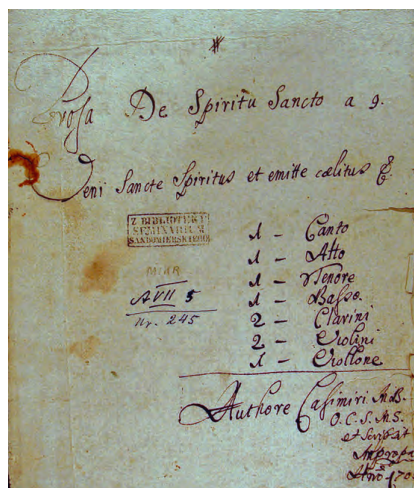 Prosa De Spiritu Sancto a 9.
Veni Sancte Spiritus et emitte cælitus &.
Z BIBLIOTEKI
SEMINARIUM
SANDOMIERSKIEGO
A VII 5
Nr. 245
1 – Canto
1 – Alto
1 – Tenore
1 – Basso.
2 – Clarini
2 – Violini
1 – Violone
Authore Casimiri
O.C.S.
et scripsit
Ano 170